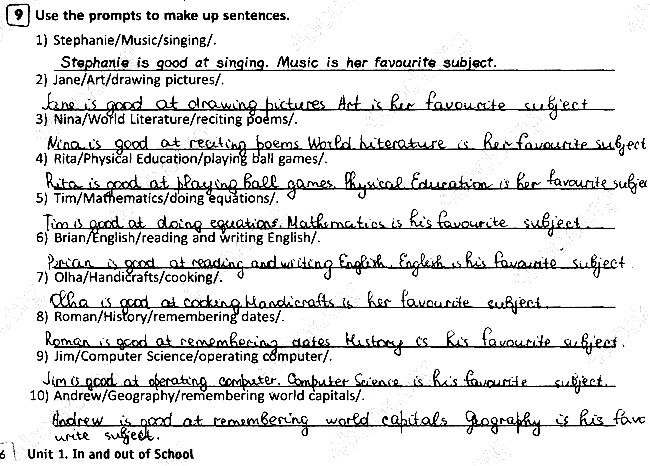 9 Use the prompts to make up sentences.
1) Stephanie/Music/singing/.
Stephanie is good at singing. Music is her favourite subject.
2) Jane/Art/drawing pictures/.
Jane is good at drawing pictures. Art is her favourite subject
3) Nina/World Literature/reciting poems/.
Nina is good at reciting poems. World Literature is her favourite subject
4) Rita/Physical Education/playing ball games/.
Rita is good at playing ball games. Physical Education is her favourite subje
5) Tim/Mathematics/doing equations/.
Tim is good at doing equations. Mathematics is his favourite subject.
6) Brian/English/reading and writing English/.
Brian is good at reading and writing English. English is his favourite subject.
7) Olha/Handicrafts/cooking/.
Olha is good at cooking. Handicrafts is her favourite subject.
8) Roman/History/remembering dates/.
Roman is good at remembering dates. History is his favourite subject.
9) Jim/Computer Science/operating computer/.
Jim is good at operating computer. Computer Science is his favourite subject.
10) Andrew/Geography/remembering world capitals/.
Andrew is good at remembering world capitals Geography is his favo
urite subject.
6 Unit 1. In and out of School